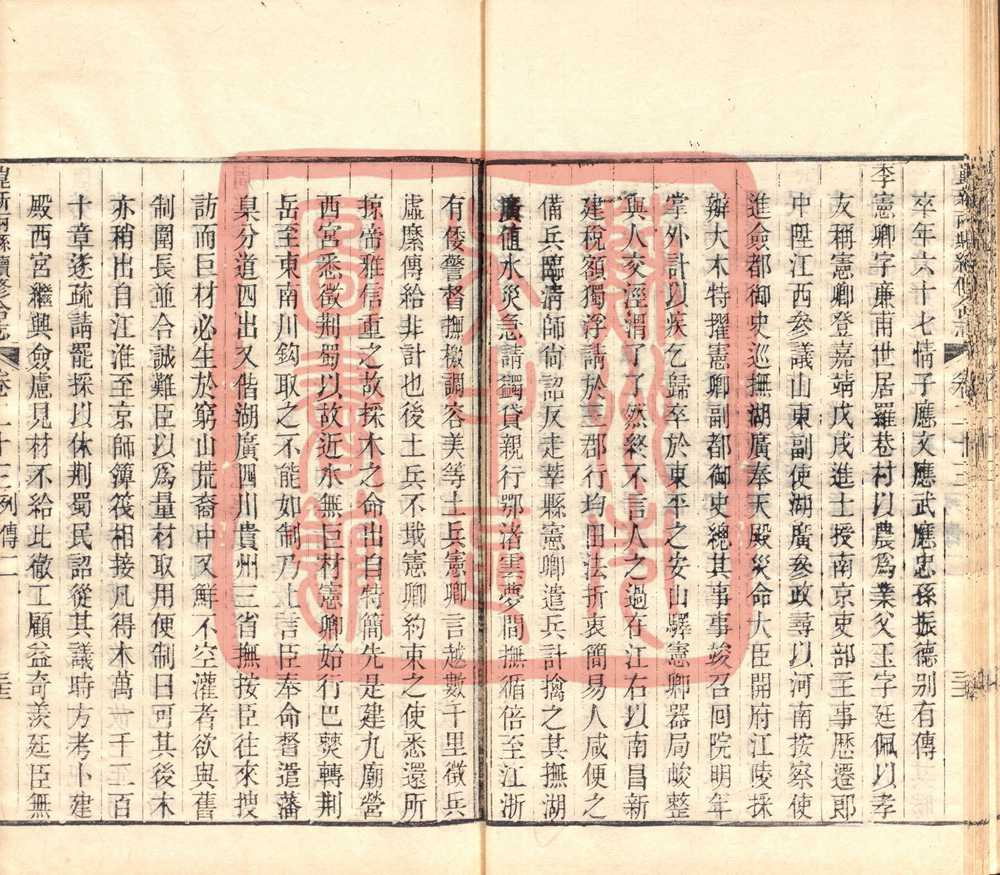 卒年六十七情子應文應武應忠孫振德别有傳
李憲卿字廉甫世居羅巷村以農爲業父玉字廷佩以孝
友稱憲卿登嘉靖戊戌進士授南京吏部主事歷遷郎
中陞江西參議山東副使湖廣參政尋以河南按察使
進僉都御史巡撫湖廣奉天殿災命大臣開府江陵採
辦大木特擢憲卿副都御史總其事事竣召囘院明年
掌外計以疾乞歸卒於東平之安山驛憲卿器局峻整
與人交涇渭了了然終不言人之過在江右以南昌新
建稅額獨浮請於主郡行均田法折衷簡易人咸便之
備兵臨清師尚詔反走莘縣憲卿遣兵計擒之其撫湖
廣值水災急請蠲貸親行鄂渚雲夢間撫循倍至江浙
有倭警督撫檄調容美等土兵憲卿言越數千里徵兵
虛縻傳給非計也後土兵不戢憲卿約束之使悉還所
掠帝雅信重之故採木之命出自特簡先是建九廟營
西宮悉徵荆蜀以故近水無巨材憲卿始行巴䕫轉荆
岳至東南川鈎取之不能如制乃上言臣奉命督遣藩
臬分道四出又偕湖廣四川貴州三省撫按臣往來搜
訪而巨材必生於窮山荒裔中又鮮不空灌者欲與舊
制圍長並合誠難臣以爲量材取用便制曰可其後木
亦稍出自江淮至京師簰筏相接凡得木萬一千二百
十章遂疏請罷採以休荆蜀民詔從其議時方考卜建
殿西宮繼興僉慮見材不給比徹工顧益奇羨廷臣無
崑新兩縣續修合志 卷二十三 列傳二